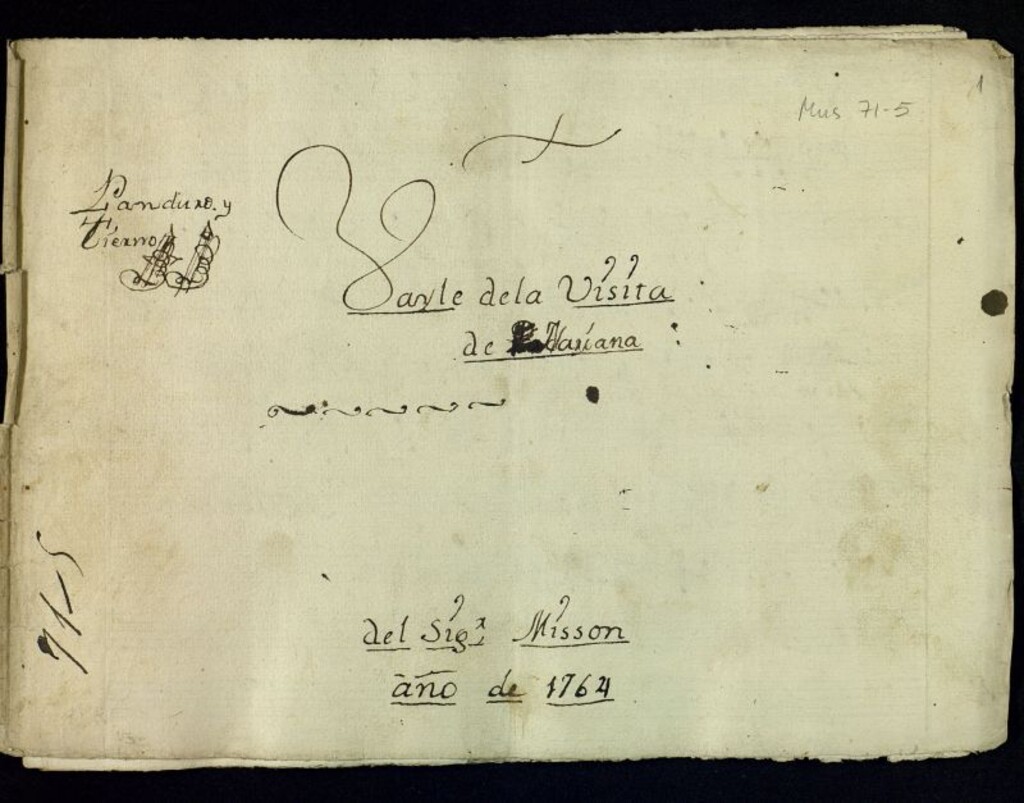 1
Mus 71-5
Panduro. y
Tierno
Bayle dela Visita
de Mariana
71-5
del Sigr. Misson
año de 1764